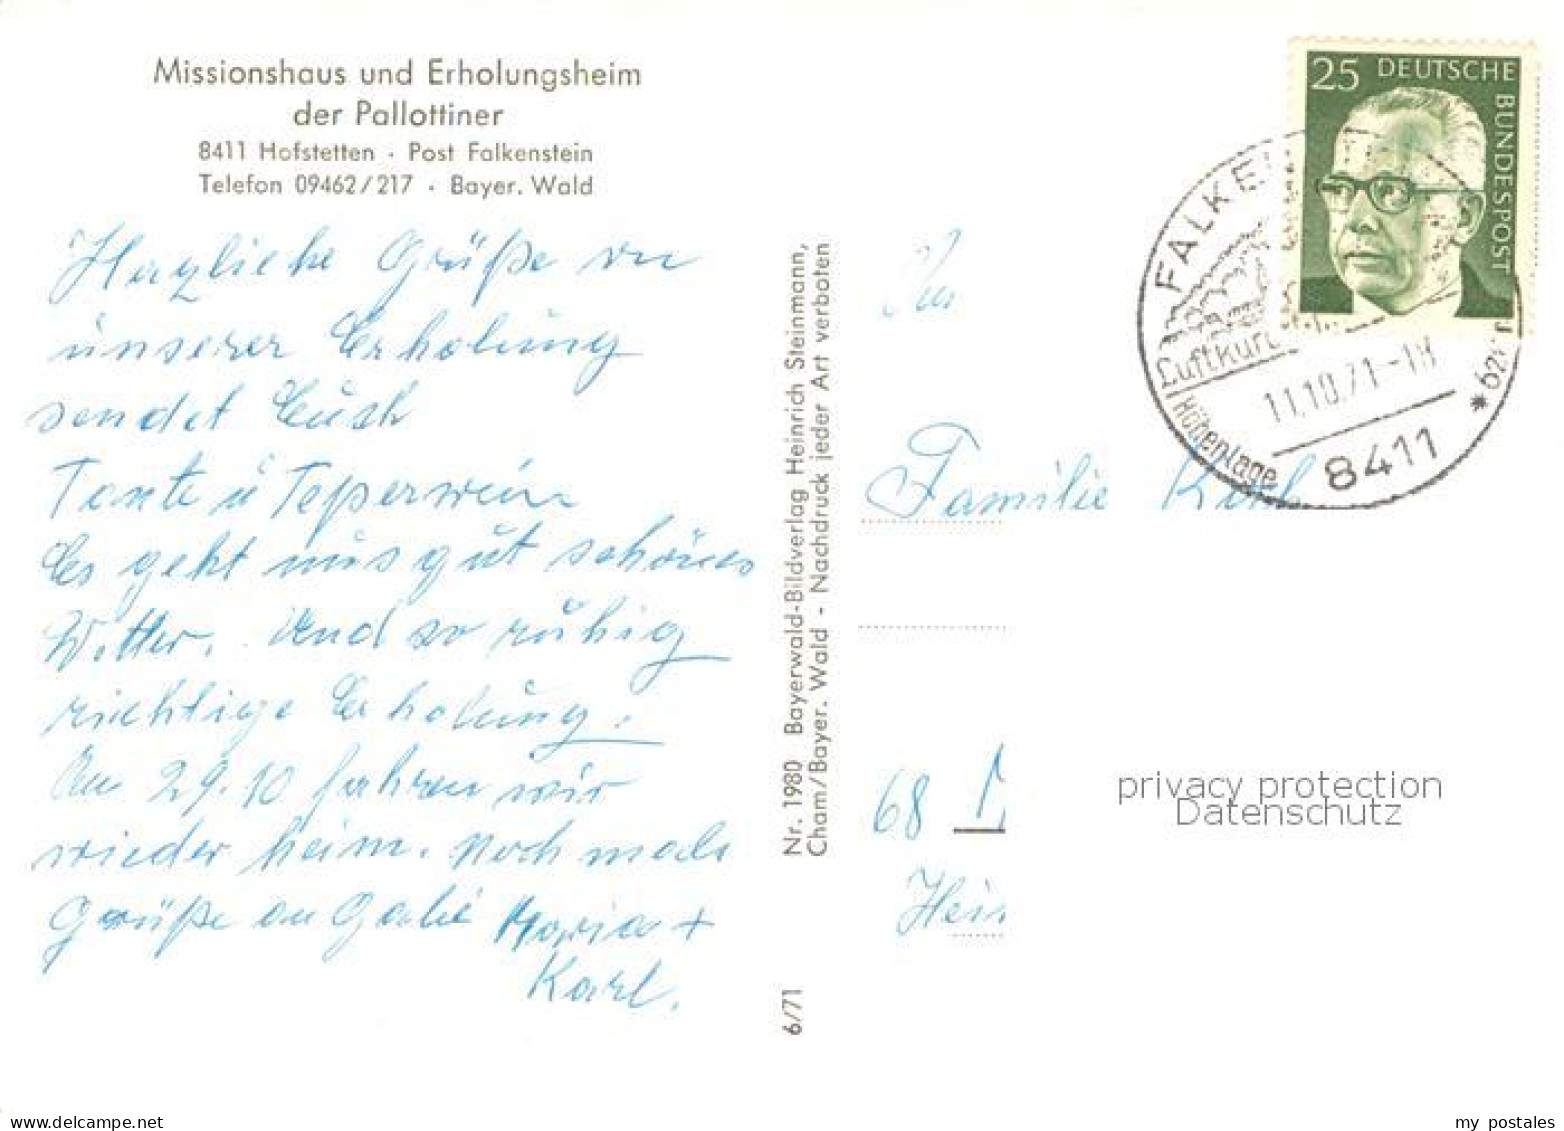 Missionshaus und Erholungsheim
der Pallottiner
8411 Hofstetten · Post Falkenstein
Telefon 09462/217 · Bayer. Wald
Herzliche Grüße von
unserer Erholung
sendet Euch
Tante u
Es geht uns gut schönes
Wetter. Und so ruhig
richtige Erholung.
Am 29.10 fahren wir
wieder heim. Nochmals
Grüße an Gabi Maria +
Karl.
Nr. 1980 Bayerwald-Bildverlag Heinrich Steinmann,
Cham/Bayer. Wald - Nachdruck jeder Art verboten
6/71
25 DEUTSCHE BUNDESPOST
FALKE
Luftkur
11.10.71-18
Höhenlage
8411
An
Familie
68
privacy protection
Datenschutz
delcampe.net
my_postales